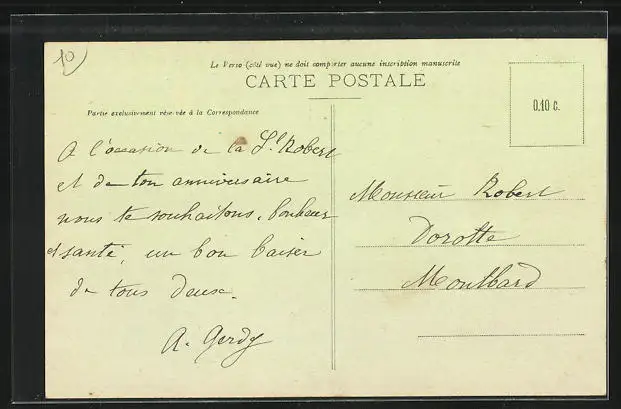 10
Le Verso (côté vue) ne doit comporter aucune inscription manuscrite
CARTE POSTALE
0.10 c.
Partie exclusivement réservée à la Correspondance
A l'occasion de la St Robert
et de ton anniversaire
nous te souhaitons, bonheur
et santé, un bon baiser
de tous deux.
A. Gerdy
Monsieur Robert
Dorotte
Montbard